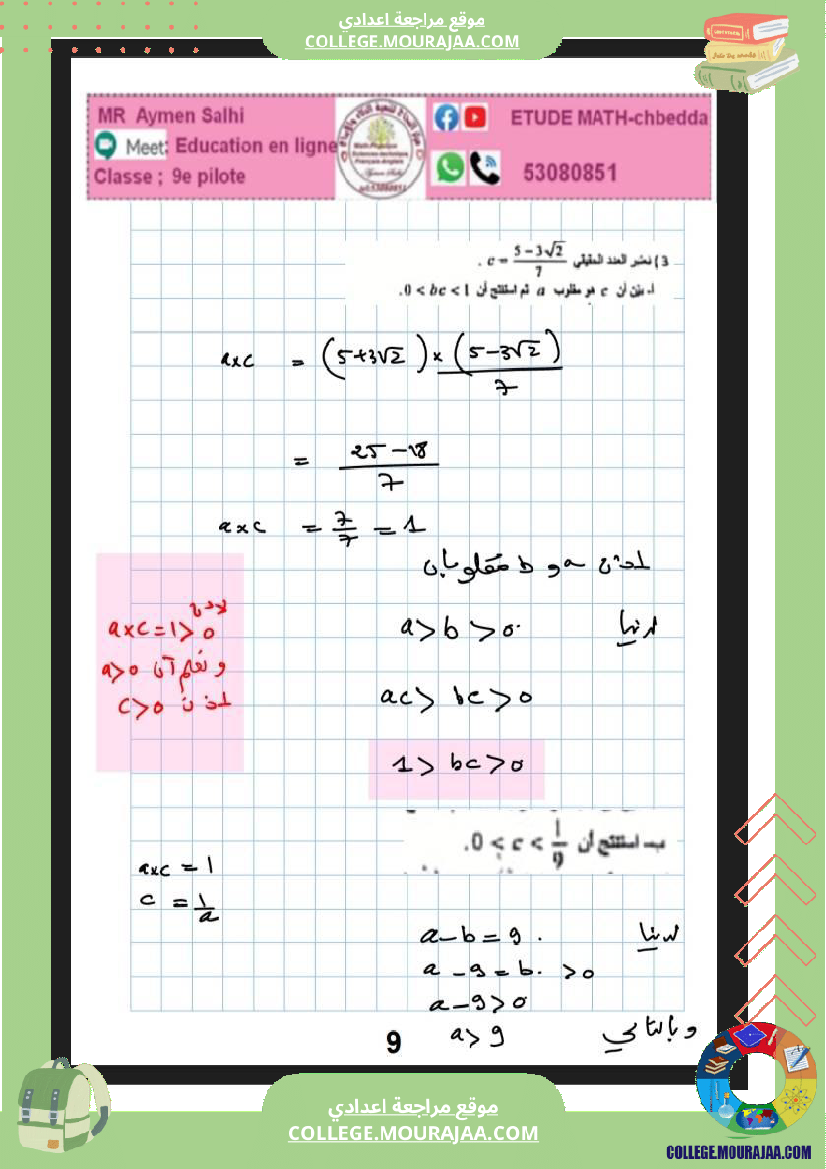 موقع مراجعة اعدادي
COLLEGE.MOURAJAA.COM
MR Aymen Salhi
Meet: Education en ligne
Classe ; 9e pilote
ETUDE MATH-chbedda
53080851
3) نعتبر العدد الحقيقي c = (5 − 3√2)/7 .
أ- بيّن أن c هو مقلوب a ثم استنتج أن 0 < bc < 1.
a×c = (5+3√2) × (5−3√2)/7
= (25 − 18)/7
a×c = 7/7 = 1
اذن a و b مقلوبان
لدينا a > b > 0
ac > bc > 0
1 > bc > 0
لأن
a×c = 1 > 0
و نعلم أن a>0
اذن c>0
ب- استنتج أن 0 < c < 1/9.
a×c = 1
c = 1/a
لدينا a − b = 9 .
a − 9 = b. > 0
a − 9 > 0
وبالتالي a > 9
9
موقع مراجعة اعدادي
COLLEGE.MOURAJAA.COM
COLLEGE.MOURAJAA.COM